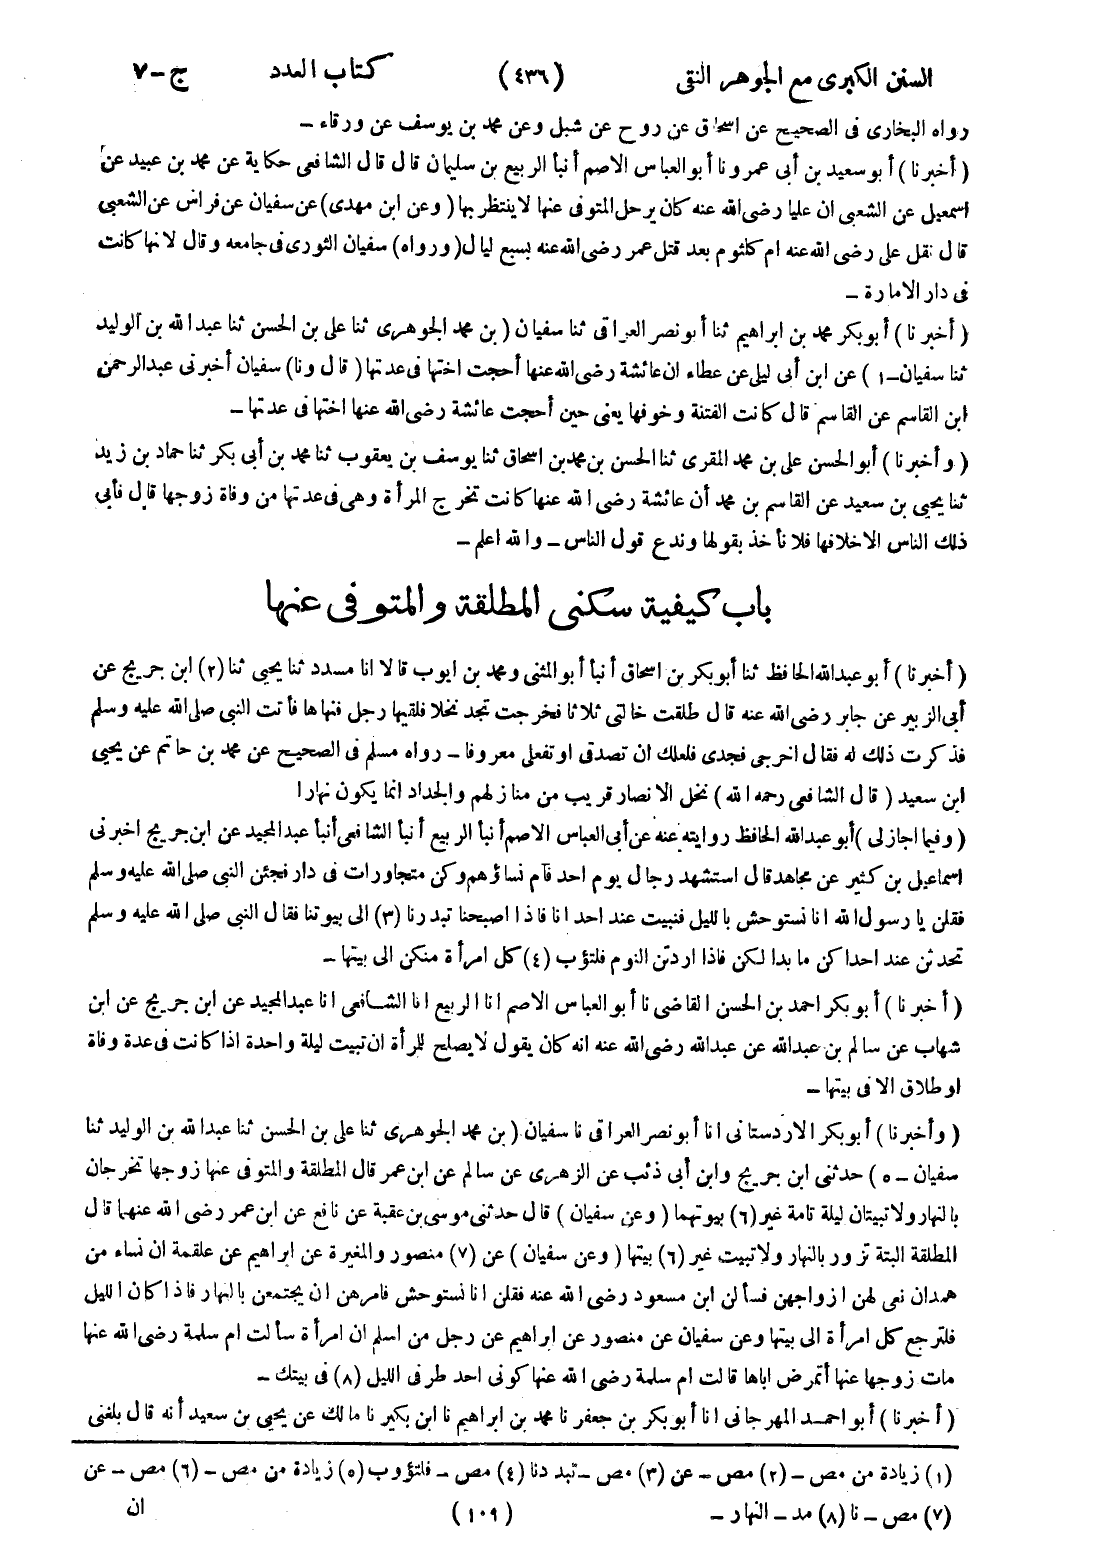 السنن الكبرى مع الجوهر النقى (٤٣٦) كتاب العدد ج-٧
رواه البخارى فى الصحيح عن اسحاق عن روح عن شبل وعن محمد بن يوسف عن ورقاء -
( أخبرنا ) أبو سعيد بن أبى عمرو نا أبو العباس الاصم أنبأ الربيع بن سليمان قال قال الشافعى حكاية عن محمد بن عبيد عن
اسمعيل عن الشعبى ان عليا رضى الله عنه كان يرحل المتوفى عنها لا ينتظر بها ( وعن ابن مهدى ) عن سفيان عن فراس عن الشعبى
قال نقل على رضى الله عنه ام كلثوم بعد قتل عمر رضى الله عنه بسبع ليال ( ورواه ) سفيان الثورى فى جامعه وقال لانها كانت
فى دار الامارة -
( أخبرنا ) أبو بكر محمد بن ابراهيم ثنا أبو نصر العراقى ثنا سفيان ( بن محمد الجوهرى ثنا على بن الحسن ثنا عبد الله بن الوليد
ثنا سفيان -١ ) عن ابن أبى ليلى عن عطاء ان عائشة رضى الله عنها أحجت اختها فى عدتها ( قال ونا ) سفيان أخبرنى عبد الرحمن
ابن القاسم عن القاسم قال كانت الفتنة وخوفها يعنى حين أحجت عائشة رضى الله عنها اختها فى عدتها -
( وأخبرنا ) أبو الحسن على بن محمد المقرى ثنا الحسن بن محمد بن اسحاق ثنا يوسف بن يعقوب ثنا محمد بن أبى بكر ثنا حماد بن زيد
ثنا يحيى بن سعيد عن القاسم بن محمد أن عائشة رضى الله عنها كانت تخرج المرأة وهى فى عدتها من وفاة زوجها قال فأبى
ذلك الناس الا خلافها فلا نأخذ بقولها وندع قول الناس - والله اعلم -
باب كيفية سكنى المطلقة والمتوفى عنها
( أخبرنا ) أبو عبد الله الحافظ ثنا أبو بكر بن اسحاق أنبأ أبو المثنى ومحمد بن ايوب قالا نا مسدد ثنا يحيى ثنا (٢) ابن جريج عن
أبى الزبير عن جابر رضى الله عنه قال طلقت خالتى ثلاثا فخرجت تجد نخلا فلقيها رجل فنهاها فأتت النبى صلى الله عليه وسلم
فذكرت ذلك له فقال اخرجى فجدى فلعلك ان تصدقى او تفعلى معروفا - رواه مسلم فى الصحيح عن محمد بن حاتم عن يحيى
ابن سعيد ( قال الشافعى رحمه الله ) نخل الانصار قريب من منازلهم والجداد انما يكون نهارا
( وفيما اجازلى ) أبو عبد الله الحافظ روايته عنه عن أبى العباس الاصم أنبأ الربيع أنبأ الشافعى أنبأ عبد المجيد عن ابن جريج اخبرنى
اسماعيل بن كثير عن مجاهد قال استشهد رجال يوم احد فآم نساؤهم وكن متجاورات فى دار فجئن النبى صلى الله عليه وسلم
فقلن يا رسول الله انا نستوحش بالليل فنبيت عند احدانا فاذا اصبحنا تبدرنا (٣) الى بيوتنا فقال النبى صلى الله عليه وسلم
تحدثن عند احداكن ما بدا لكن فاذا اردتن النوم فلتؤب (٤) كل امرأة منكن الى بيتها -
( أخبرنا ) أبو بكر احمد بن الحسن القاضى نا أبو العباس الاصم انا الربيع انا الشافعى انا عبد المجيد عن ابن جريج عن ابن
شهاب عن سالم بن عبد الله عن عبد الله رضى الله عنه انه كان يقول لا يصلح للمرأة ان تبيت ليلة واحدة اذا كانت فى عدة وفاة
او طلاق الا فى بيتها -
( وأخبرنا ) أبو بكر الاردستانى انا أبو نصر العراقى نا سفيان ( بن محمد الجوهرى ثنا على بن الحسن ثنا عبد الله بن الوليد ثنا
سفيان - ٥ ) حدثنى ابن جريج وابن أبى ذئب عن الزهرى عن سالم عن ابن عمر قال المطلقة والمتوفى عنها زوجها تخرجان
بالنهار ولا تبيتان ليلة تامة غير (٦) بيوتهما ( وعن سفيان ) قال حدثنى موسى بن عقبة عن نافع عن ابن عمر رضى الله عنهما قال
المطلقة البتة تزور بالنهار ولا تبيت غير (٦) بيتها ( وعن سفيان ) عن (٧) منصور والمغيرة عن ابراهيم عن علقمة ان نساء من
همدان نعى لهن ازواجهن فسألن ابن مسعود رضى الله عنه فقلن انا نستوحش فامرهن ان يجتمعن بالنهار فاذا كان الليل
فلترجع كل امرأة الى بيتها وعن سفيان عن منصور عن ابراهيم عن رجل من اسلم ان امرأة سألت ام سلمة رضى الله عنها
مات زوجها عنها أتمرض اباها قالت ام سلمة رضى الله عنها كونى احد طرفى الليل (٨) فى بيتك -
( أخبرنا ) أبو احمد المهرجانى انا أبو بكر بن جعفر نا محمد بن ابراهيم نا ابن بكير نا مالك عن يحيى بن سعيد أنه قال بلغنى
(١) زيادة من مص - (٢) مص - عن (٣) مص - تبددنا (٤) مص - فلتؤوب (٥) زيادة من مص - (٦) مص - عن
(٧) مص - نا (٨) مد - النهار - (١٠٩) ان